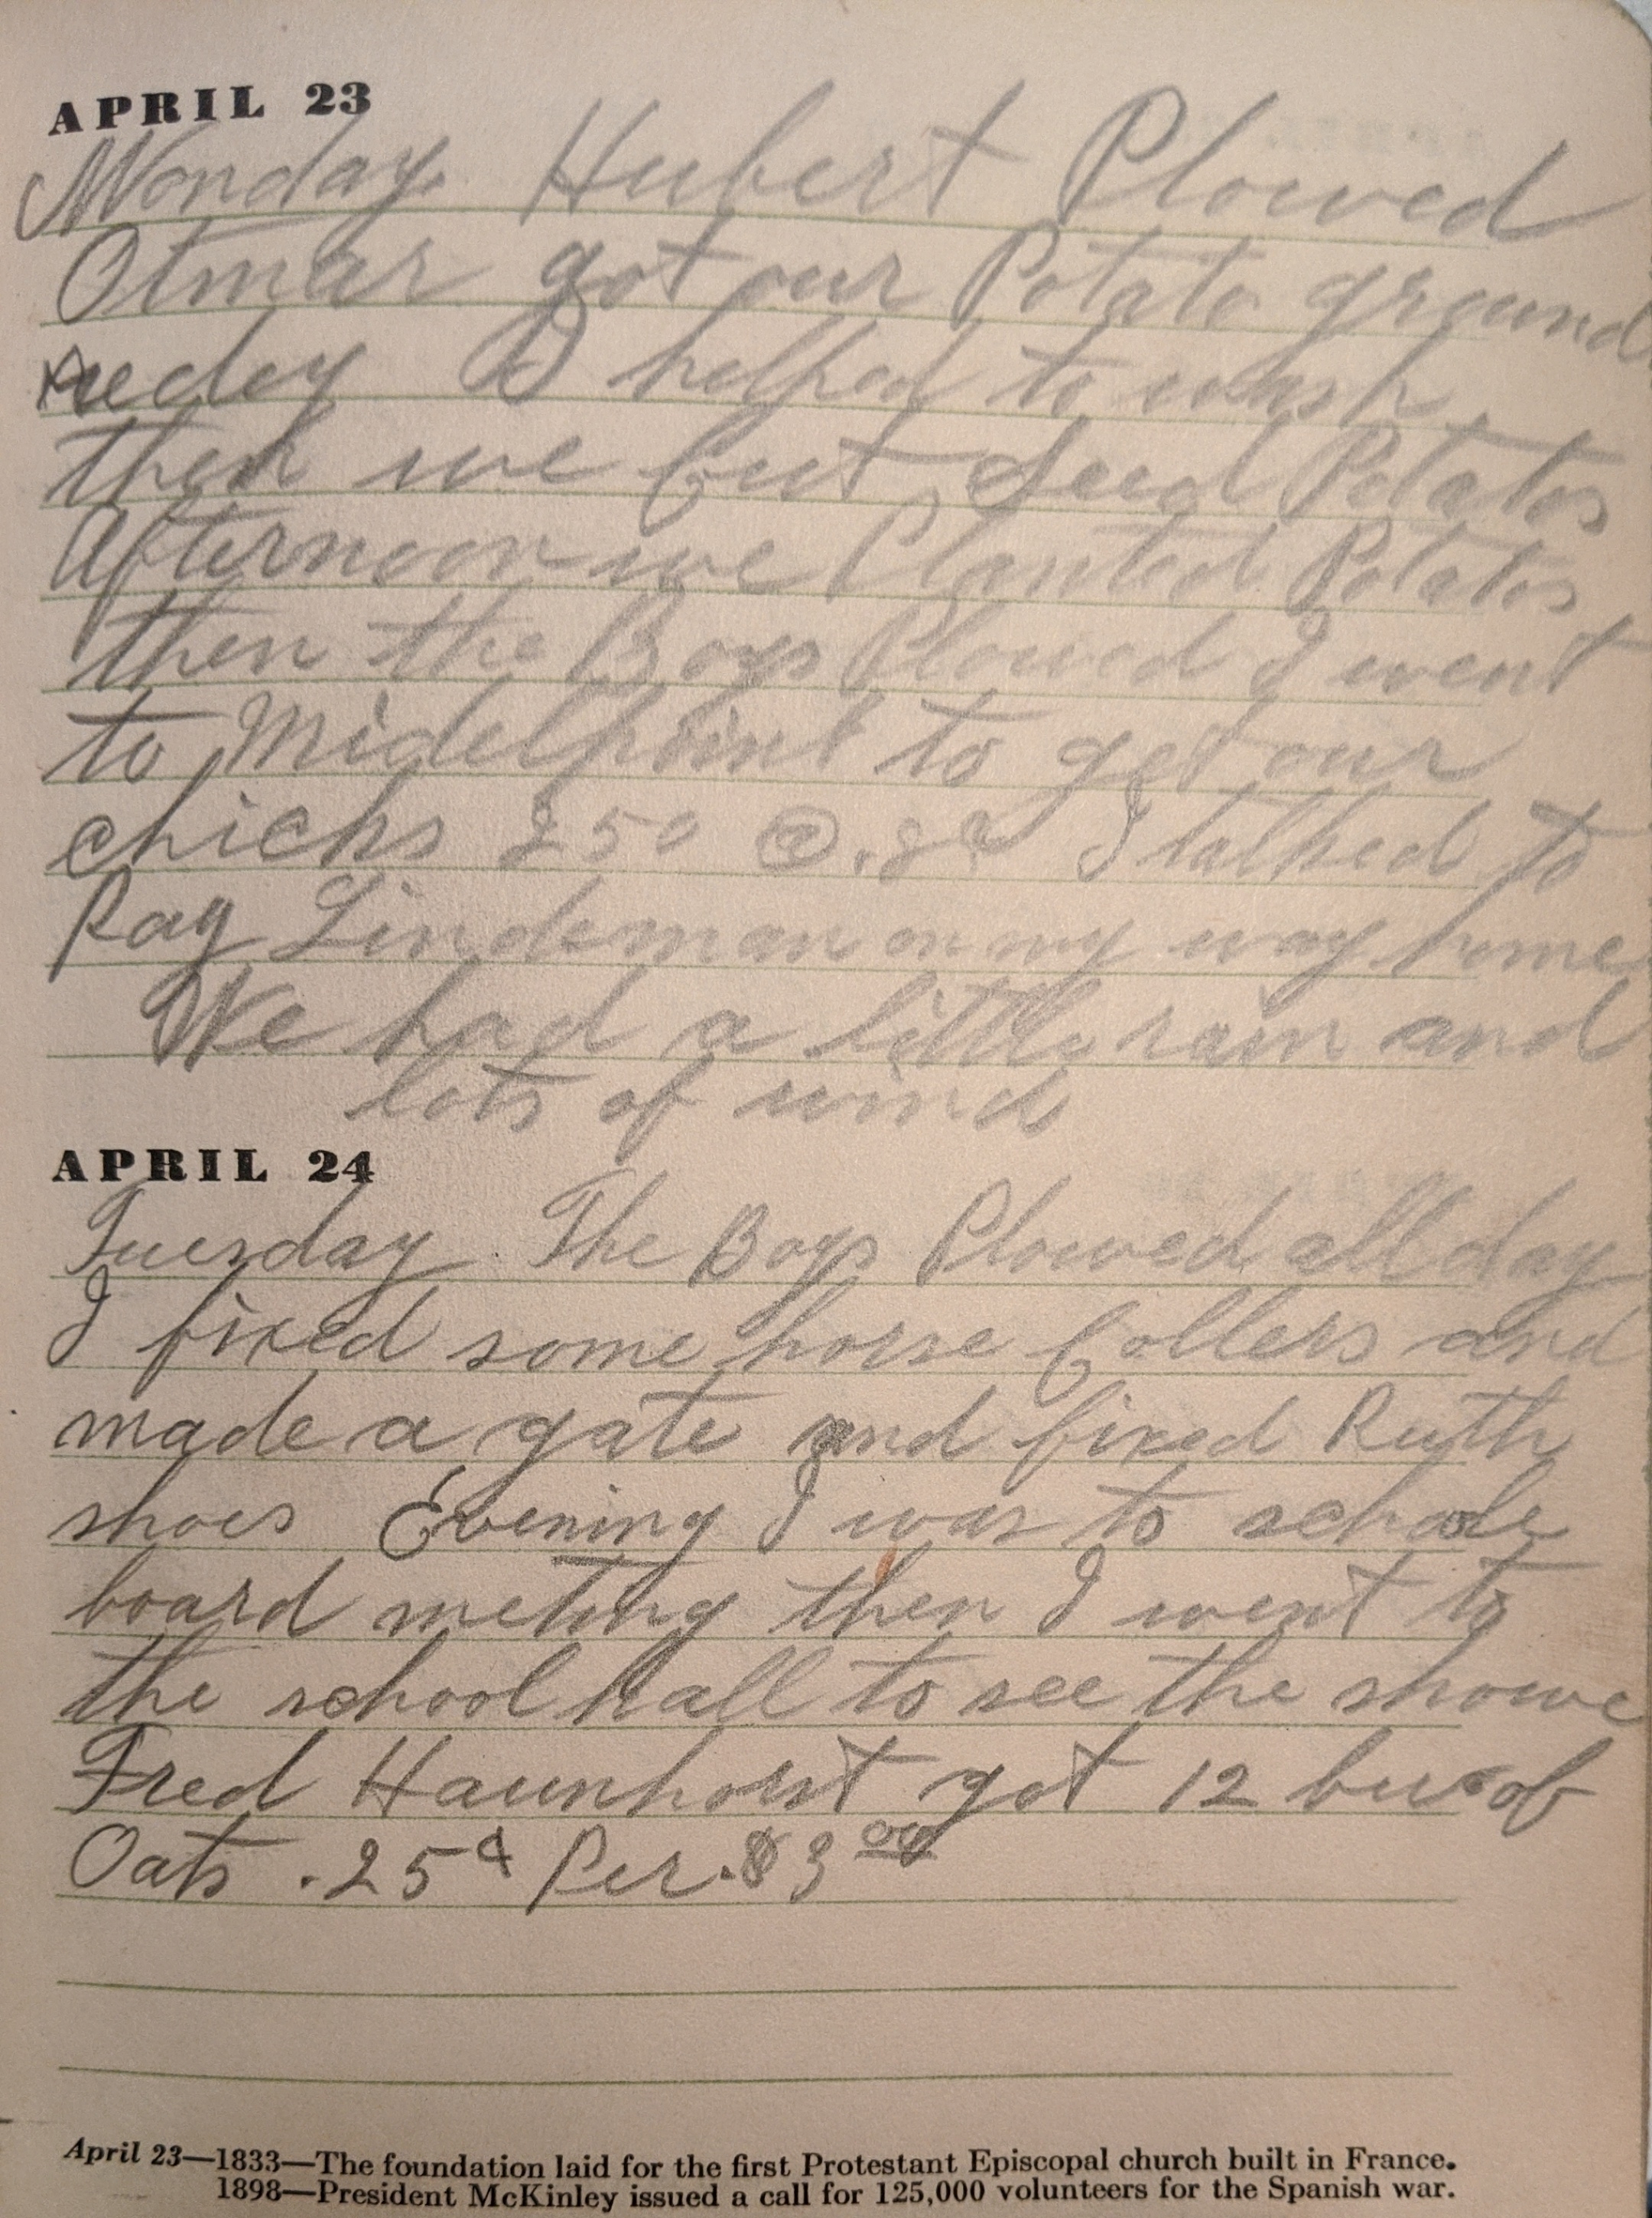 APRIL 23
Monday. Hubert Plowed
Otmar got our Potato ground
redey I helped to wash
then we Cut Seed Potatos
Afternoon we Planted Potatos
then the Boys Plowed I went
to Midelpoint to get our
chicks 250 @ .8¢ I talked to
Ray Lindeman on my way home
We had a little rain and
lots of wind
APRIL 24
Tuesday. The Boys Plowed all day
I fixed some horse Collers and
made a gate and fixed Ruth
shoes Evening I was to schole
board meting then I went to
the school hall to see the showe
Fred Haunhorst got 12 bu of
Oats .25¢ Per. $3 00
April 23—1833—The foundation laid for the first Protestant Episcopal church built in France.
1898—President McKinley issued a call for 125,000 volunteers for the Spanish war.